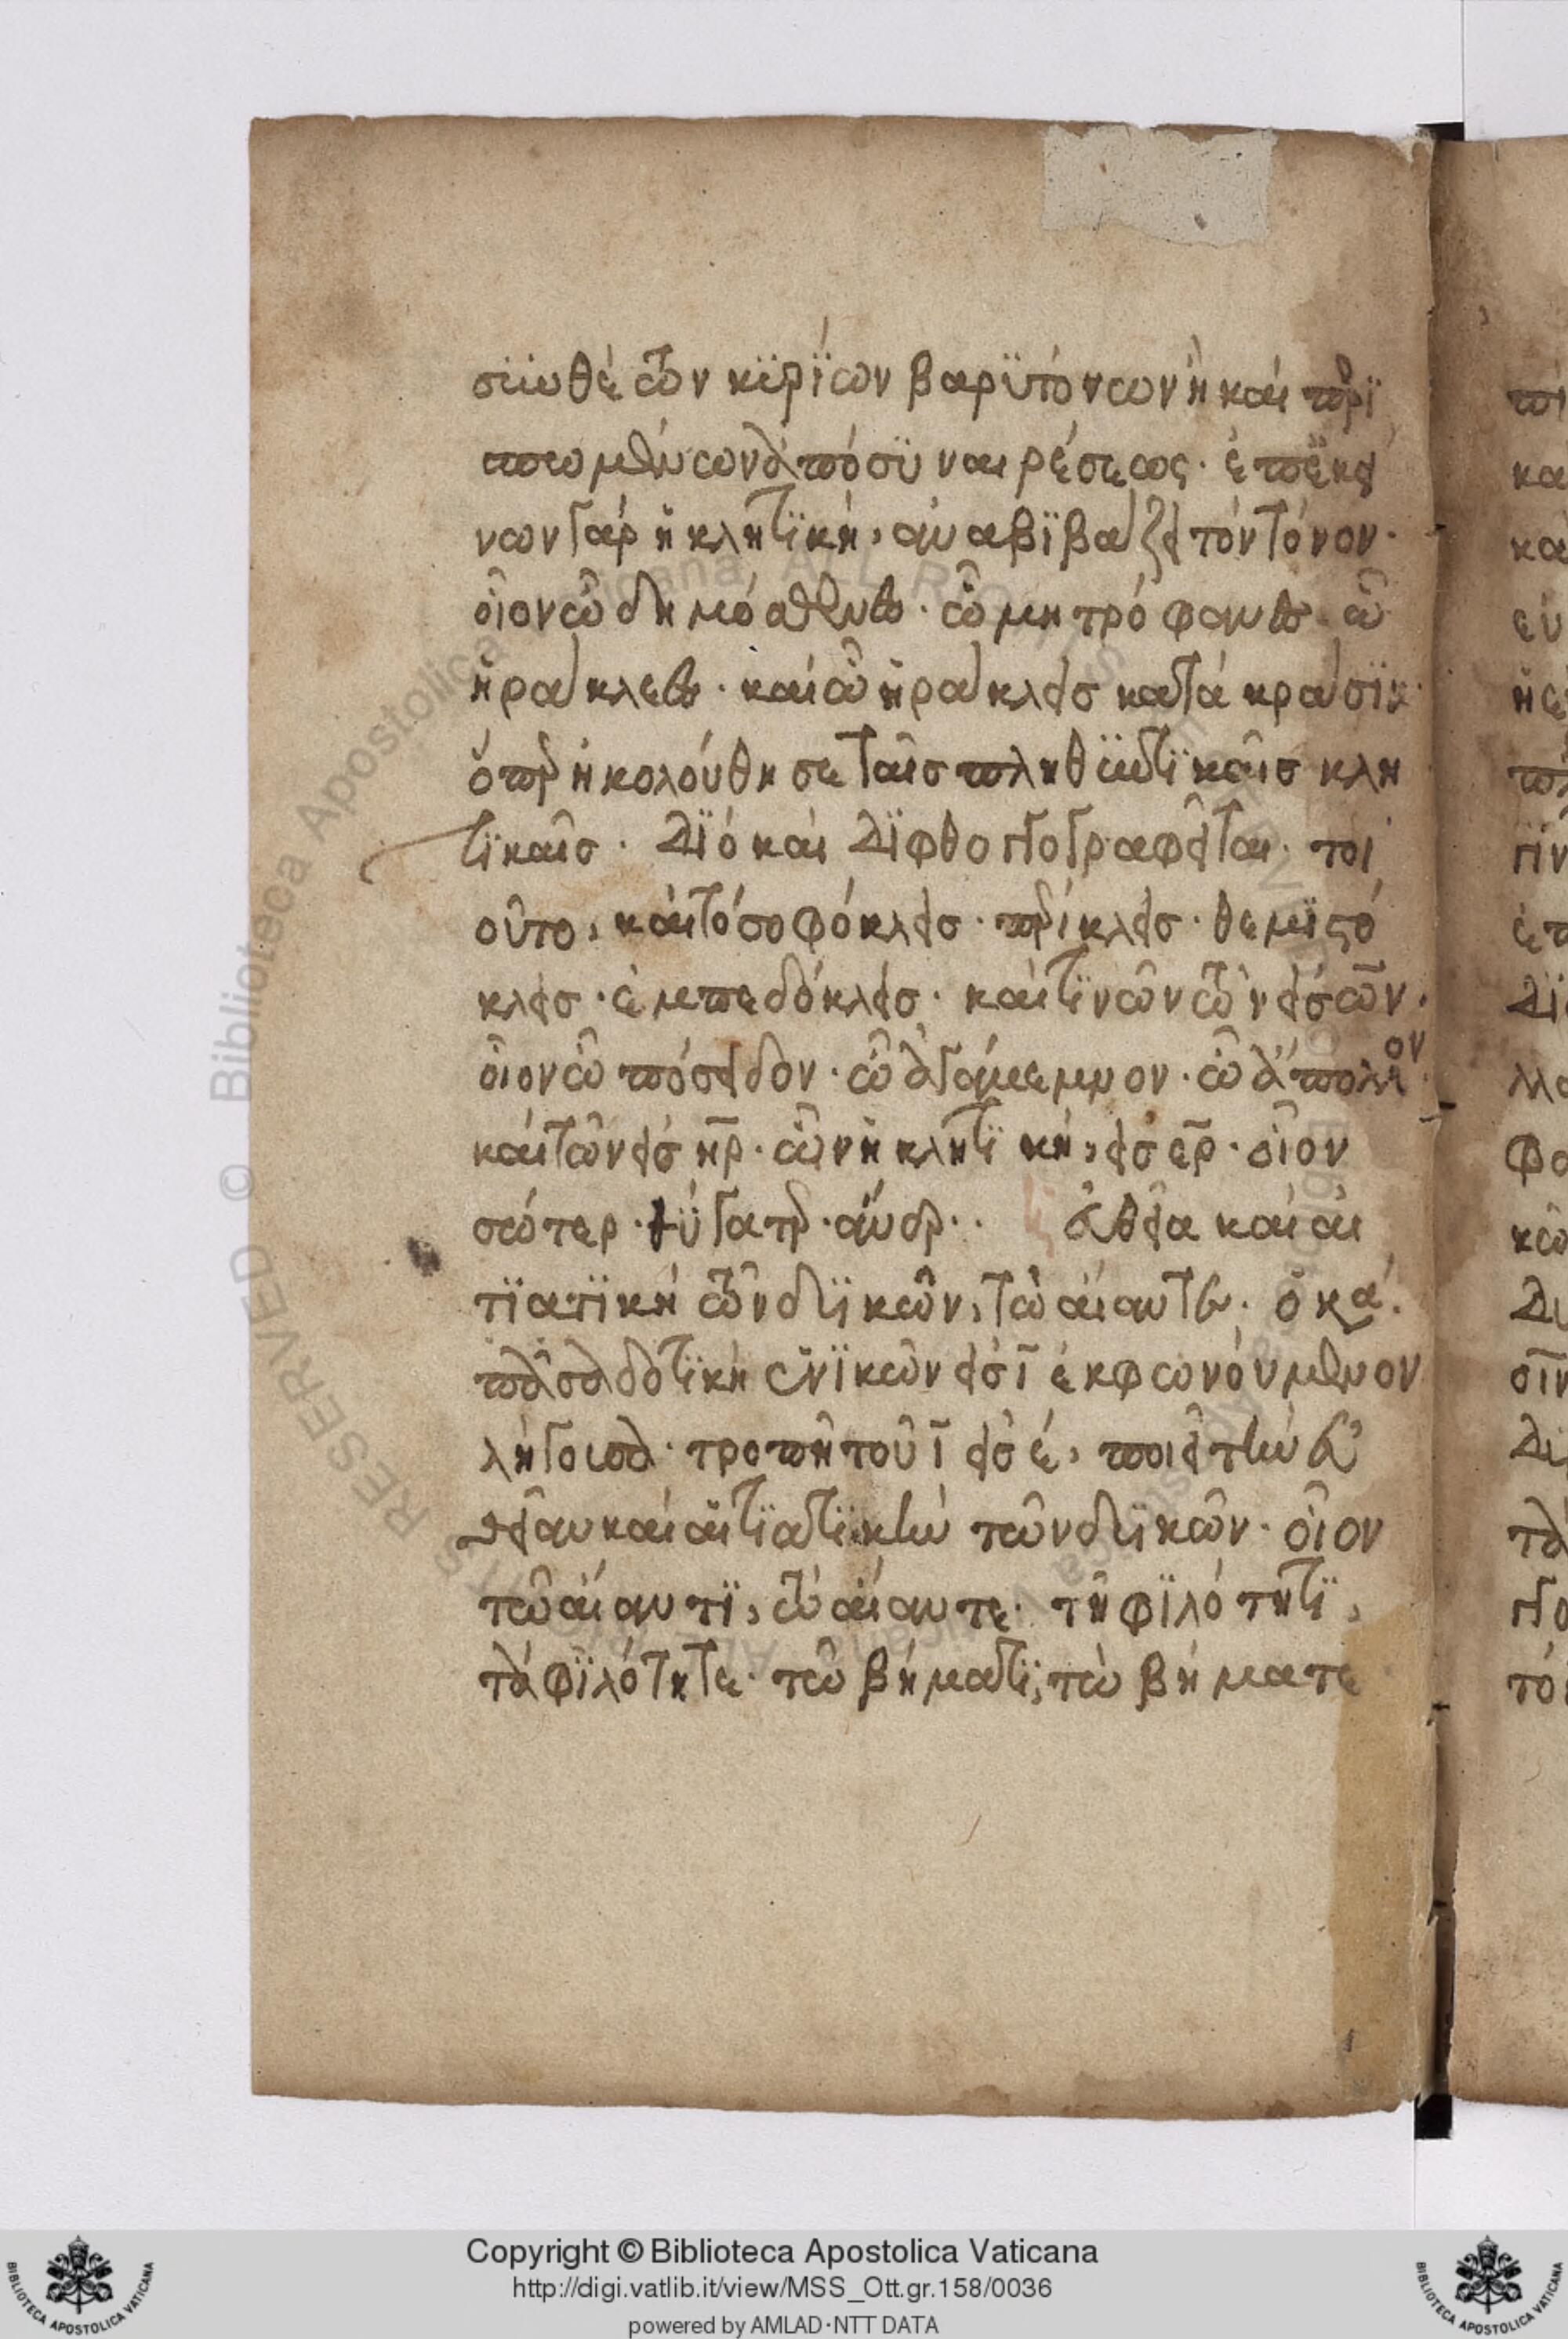 συνθέτων κϋρΐων βαρϋτόνων ἢ καὶ περΐ
σπωμένων ἀπὸ σϋναιρέσεως· ἐπ' ἐκεί
νων γὰρ ἡ κλητϊκὴ, ἀναβϊβάζει τὸν τόνον·
οἷον ὦ δημόσθενες· ὦ μητρόφανες· ὦ
ἥρακλεες· καὶ ὦ ἥρακλεις κατὰ κρᾶσϊν·
ὅπερ ἠκολούθησε ταῖς πληθϋντϊκαῖς κλη
τϊκαῖς· διὸ καὶ δϊφθογγογραφεῖται· τοι
οῦτο, καὶ τὸ σοφόκλεις· περίκλεις· θεμϊστό
κλεις· ἐμπεδόκλεις· καὶ τϊνῶν τῶν εἰς ων,
οἷον ὦ πόσειδον· ὦ ἀγάμεμνον· ὦ ἄπολλον
καὶ τῶν εἰς ηρ· ὧν ἡ κλητϊκὴ, εἰς ερ· οἷον
σῶτερ· θύγατερ· ἄνερ·· εὐθεῖα καὶ αἰ
τϊατϊκὴ τῶν δϋϊκῶν, τὼ αἴαντε· ὁ κα.
πᾶσα δοτϊκὴ ἑνϊκῶν εἰς ϊ ἐκφωνούμενον
λήγουσα· τροπῇ τοῦ ϊ εἰς ε, ποιεῖ τὴν εὐ
θεῖαν καὶ αἰτϊατϊκὴν τῶν δϋϊκῶν· οἷον
τῶ αἴαντϊ, τὼ αἴαντε· τῆ φϊλότητϊ,
τὰ φϊλότητε· τῶ βήματϊ, τὼ βήματε
Copyright © Biblioteca Apostolica Vaticana
http://digi.vatlib.it/view/MSS_Ott.gr.158/0036
powered by AMLAD·NTT DATA